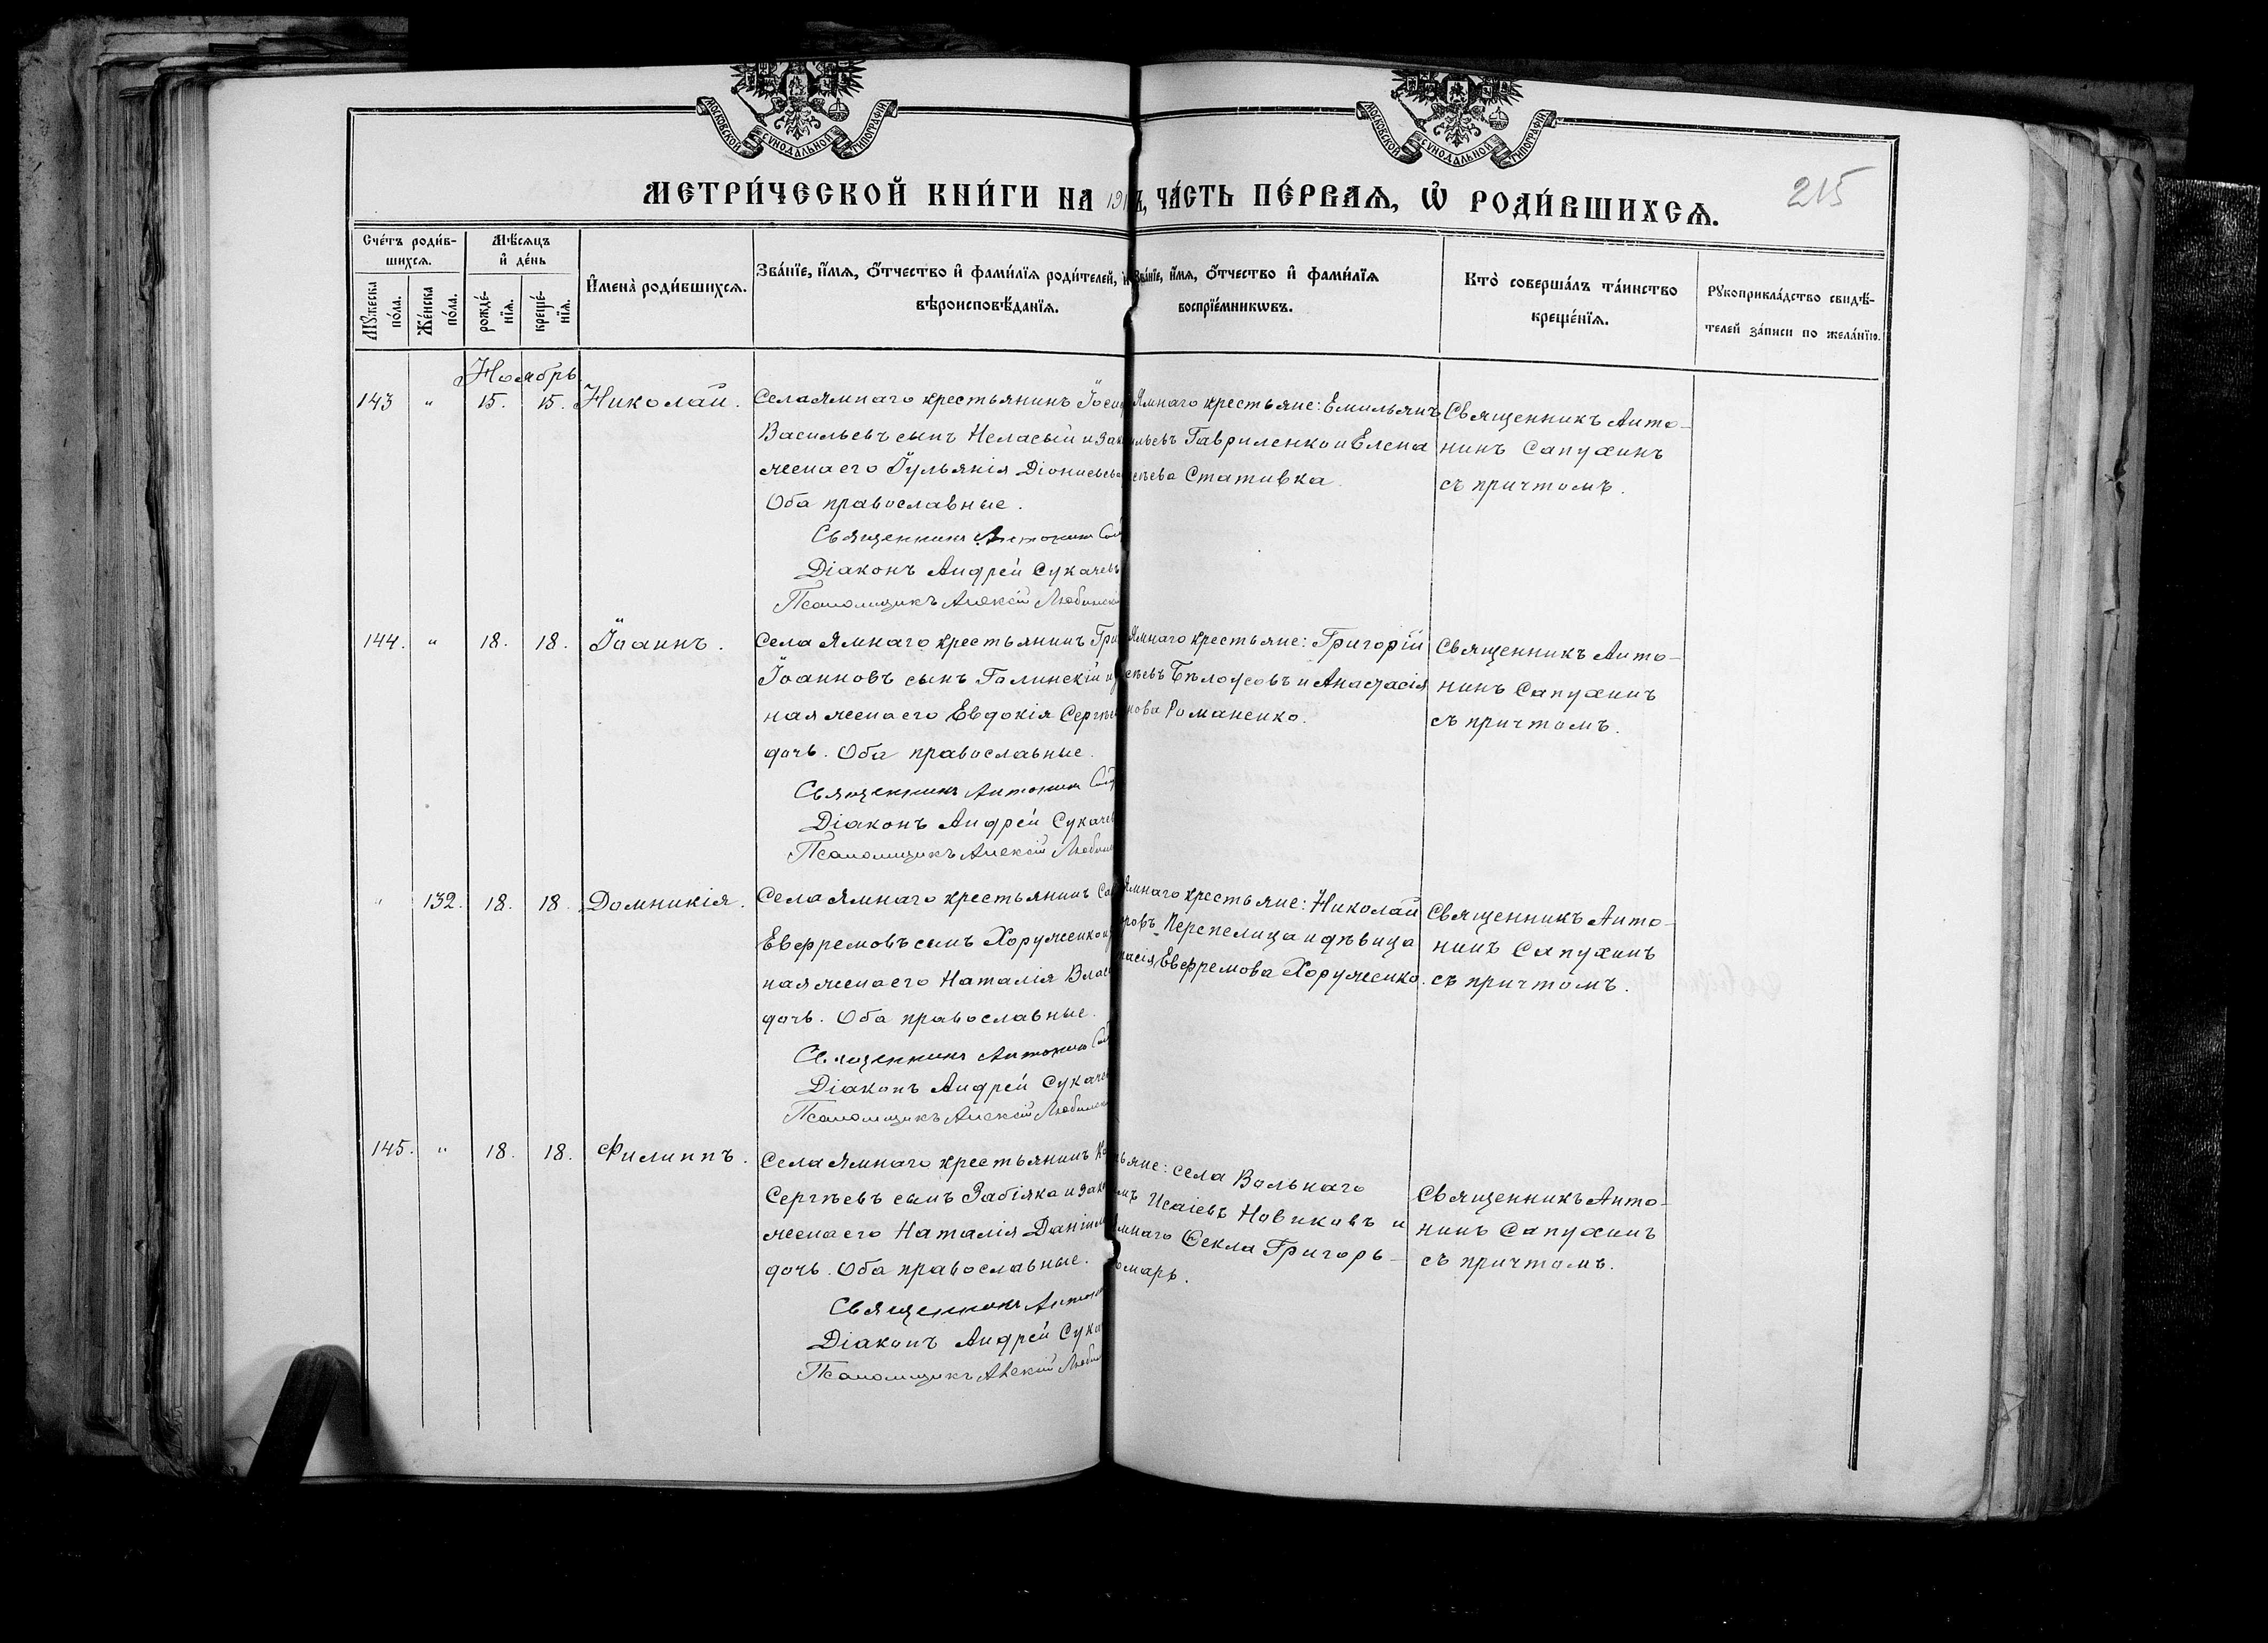 МОСКОВСКОЙ СѴНОДАЛЬНОЙ ТИПОГРАФІИ
МОСКОВСКОЙ СѴНОДАЛЬНОЙ ТИПОГРАФІИ
МЕТРИ́ЧЕСКОЙ КНИ́ГИ НА 191
ЧА́СТЬ ПЕ́РВАѦ, Ѽ РОДИ́ВШИХСѦ.
215
Сче́тъ роди́в-
шихсѧ.
Мѣ́сѧцъ
и҆ де́нь
Мꙋ́жеска
по́ла.
Же́нска
по́ла.
рожде́-
нїѧ.
креще́-
нїѧ.
И҆мена̀ роди́вшихсѧ.
Зва́нїе, и҆́мѧ, ѻ҆́тчество и҆ фами́лїѧ роди́телей, и҆
вѣроисповѣ́данїѧ.
Зва́нїе, и҆́мѧ, ѻ҆́тчество и҆ фами́лїѧ
воспрїе́мникѡвъ.
Кто̀ соверша́лъ та́инство
креще́нїѧ.
Рꙋкоприкла́дство свидѣ́-
телей за́писи по жела́нїю.
Ноябрь
143 " 15. 15. Николай.
Села Ямнаго крестьянинъ Іоси
Васильевъ сынъ Неласый и зак
жена его Іульянія Діонисьев
Оба православные.
Священникъ Антонинъ Сап
Діаконъ Андрей Сукачевъ
Псаломщикъ Алексій Любинск
Ямнаго крестьяне: Емильянъ
ильевъ Гавриленко и Елена
сѣева Стативка.
Священникъ Анто-
нинъ Сапухинъ
съ причтомъ.
144. " 18. 18. Іоаннъ.
Села Ямнаго крестьянинъ Гри
Іоанновъ сынъ Галинскій и
ная жена его Евдокія Сергѣе
дочь. Оба православные.
Священникъ Антонинъ Сап
Діаконъ Андрей Сукачев
Псаломщикъ Алексій Любин
Ямнаго крестьяне: Григорій
сѣевъ Бѣлоусовъ и Анастасія
нова Романенко.
Священникъ Анто-
нинъ Сапухинъ
съ причтомъ.
" 132. 18. 18. Домникія.
Села Ямнаго крестьянинъ Са
Евфремовъ сынъ Хоруженко и
ная жена его Наталія Влас
дочь. Оба православные.
Священникъ Антонинъ Сап
Діаконъ Андрей Сукаче
Псаломщикъ Алексій Любинск
Ямнаго крестьяне: Николай
ровъ Перепелица и дѣвица
тасія Евфремова Хоруженко.
Священникъ Анто-
нинъ Сапухинъ
съ причтомъ.
145. " 18. 18. Филиппъ.
Села Ямнаго крестьянинъ
Сергѣевъ сынъ Забіяка и зак
жена его Наталія Даніил
дочь. Оба православные.
Священникъ Антон
Діаконъ Андрей Сука
Псаломщикъ Алексій Любин
ьяне: села Вольнаго
мъ Исаіевъ Новиковъ и
Ямнаго Ѳекла Григорь-
омарь.
Священникъ Анто-
нинъ Сапухинъ
съ причтомъ.